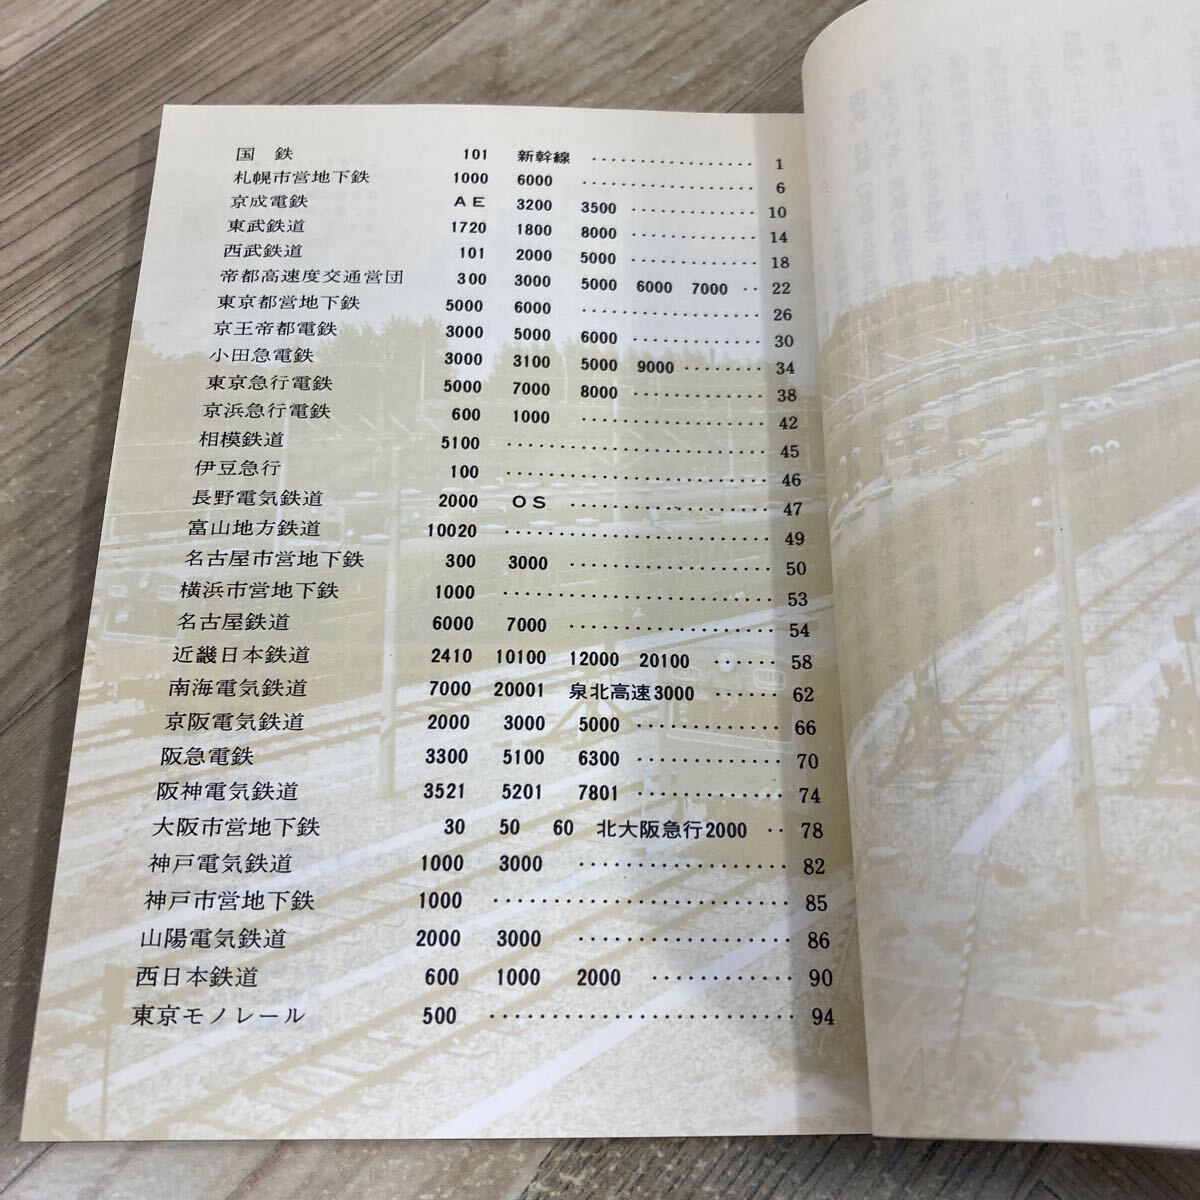 国鉄 101 新幹線 ・・・・・・・・・・・・・・・・・ 1
札幌市営地下鉄 1000 6000 ・・・・・・・・・・・・・・・・・・ 6
京成電鉄 AE 3200 3500 ・・・・・・・・・・・・・ 10
東武鉄道 1720 1800 8000 ・・・・・・・・・・・・・ 14
西武鉄道 101 2000 5000 ・・・・・・・・・・・・・ 18
帝都高速度交通営団 300 3000 5000 6000 7000 ・・ 22
東京都営地下鉄 5000 6000 ・・・・・・・・・・・・・・・・・・ 26
京王帝都電鉄 3000 5000 6000 ・・・・・・・・・・・・・ 30
小田急電鉄 3000 3100 5000 9000 ・・・・・・・・ 34
東京急行電鉄 5000 7000 8000 ・・・・・・・・・・・・・ 38
京浜急行電鉄 600 1000 ・・・・・・・・・・・・・・・・・・ 42
相模鉄道 5100 ・・・・・・・・・・・・・・・・・・・・・・・・・ 45
伊豆急行 100 ・・・・・・・・・・・・・・・・・・・・・・・・・ 46
長野電気鉄道 2000 OS ・・・・・・・・・・・・・・・・・・・ 47
富山地方鉄道 10020 ・・・・・・・・・・・・・・・・・・・・・・・・・ 49
名古屋市営地下鉄 300 3000 ・・・・・・・・・・・・・・・・・・・ 50
横浜市営地下鉄 1000 ・・・・・・・・・・・・・・・・・・・・・・・・・ 53
名古屋鉄道 6000 7000 ・・・・・・・・・・・・・・・・・・・ 54
近畿日本鉄道 2410 10100 12000 20100 ・・・・・・ 58
南海電気鉄道 7000 20001 泉北高速3000 ・・・・・・ 62
京阪電気鉄道 2000 3000 5000 ・・・・・・・・・・・・ 66
阪急電鉄 3300 5100 6300 ・・・・・・・・・・・・ 70
阪神電気鉄道 3521 5201 7801 ・・・・・・・・・・・・ 74
大阪市営地下鉄 30 50 60 北大阪急行2000 ・・ 78
神戸電気鉄道 1000 3000 ・・・・・・・・・・・・・・・・・・ 82
神戸市営地下鉄 1000 ・・・・・・・・・・・・・・・・・・・・・・・・ 85
山陽電気鉄道 2000 3000 ・・・・・・・・・・・・・・・・・・ 86
西日本鉄道 600 1000 2000 ・・・・・・・・・・・・ 90
東京モノレール 500 ・・・・・・・・・・・・・・・・・・・・・・・・ 94